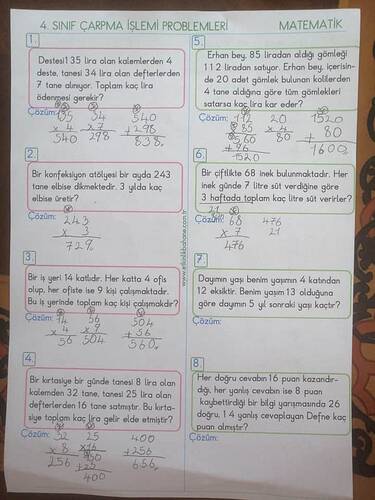 4. SINIF ÇARPMA İŞLEMİ PROBLEMLERİ
MATEMATİK
1.
Destesi 135 lira olan kalemlerden 4
deste, tanesi 34 lira olan defterlerden
7 tane alınıyor. Toplam kaç lira
ödenmesi gerekir?
Çözüm:
135 34 540
x 4 x 7 +298
540 298 838
2.
Bir konfeksiyon atölyesi bir ayda 243
tane elbise dikmektedir. 3 yılda kaç
elbise üretir?
Çözüm:
243
x 3
729
3.
Bir iş yeri 14 katlıdır. Her katta 4 ofis
olup, her ofiste ise 9 kişi çalışmaktadır.
Bu iş yerinde toplam kaç kişi çalışmakdır?
Çözüm:
14 56 504
x 4 x 9 + 56
56 504 560
4.
Bir kırtasiye bir günde tanesi 8 lira olan
kalemden 32 tane, tanesi 25 lira olan
defterlerden 16 tane satmıştır. Bu kırta-
siye toplam kaç lira gelir elde etmiştir?
Çözüm:
32 25 400
x 8 x16 +256
256 656
400
www.etkinlikbahane.com.tr
5.
Erhan bey, 85 liradan aldığı gömleği
112 liradan satıyor. Erhan bey, içerisin-
de 20 adet gömlek bulunan kolilerden
4 tane aldığına göre tüm gömlekleri
satarsa kaç lira kar eder?
Çözüm:
112 20 1520
x 85 x 4 + 80
560 80 1600
+ 96
1520
6.
Bir çiftlikte 68 inek bulunmaktadır. Her
inek günde 7 litre süt verdiğine göre
3 haftada toplam kaç litre süt verirler?
Çözüm:
21
68 476
x 7 21
476
7.
Dayımın yaşı benim yaşımın 4 katından
12 eksiktir. Benim yaşım 13 olduğuna
göre dayımın 5 yıl sonraki yaşı kaçtır?
Çözüm:
8.
Her doğru cevabın 16 puan kazandır-
dığı, her yanlış cevabın ise 8 puan
kaybettirdiği bir bilgi yarışmasında 26
doğru, 14 yanlış cevaplayan Defne kaç
puan almıştır?
Çözüm: